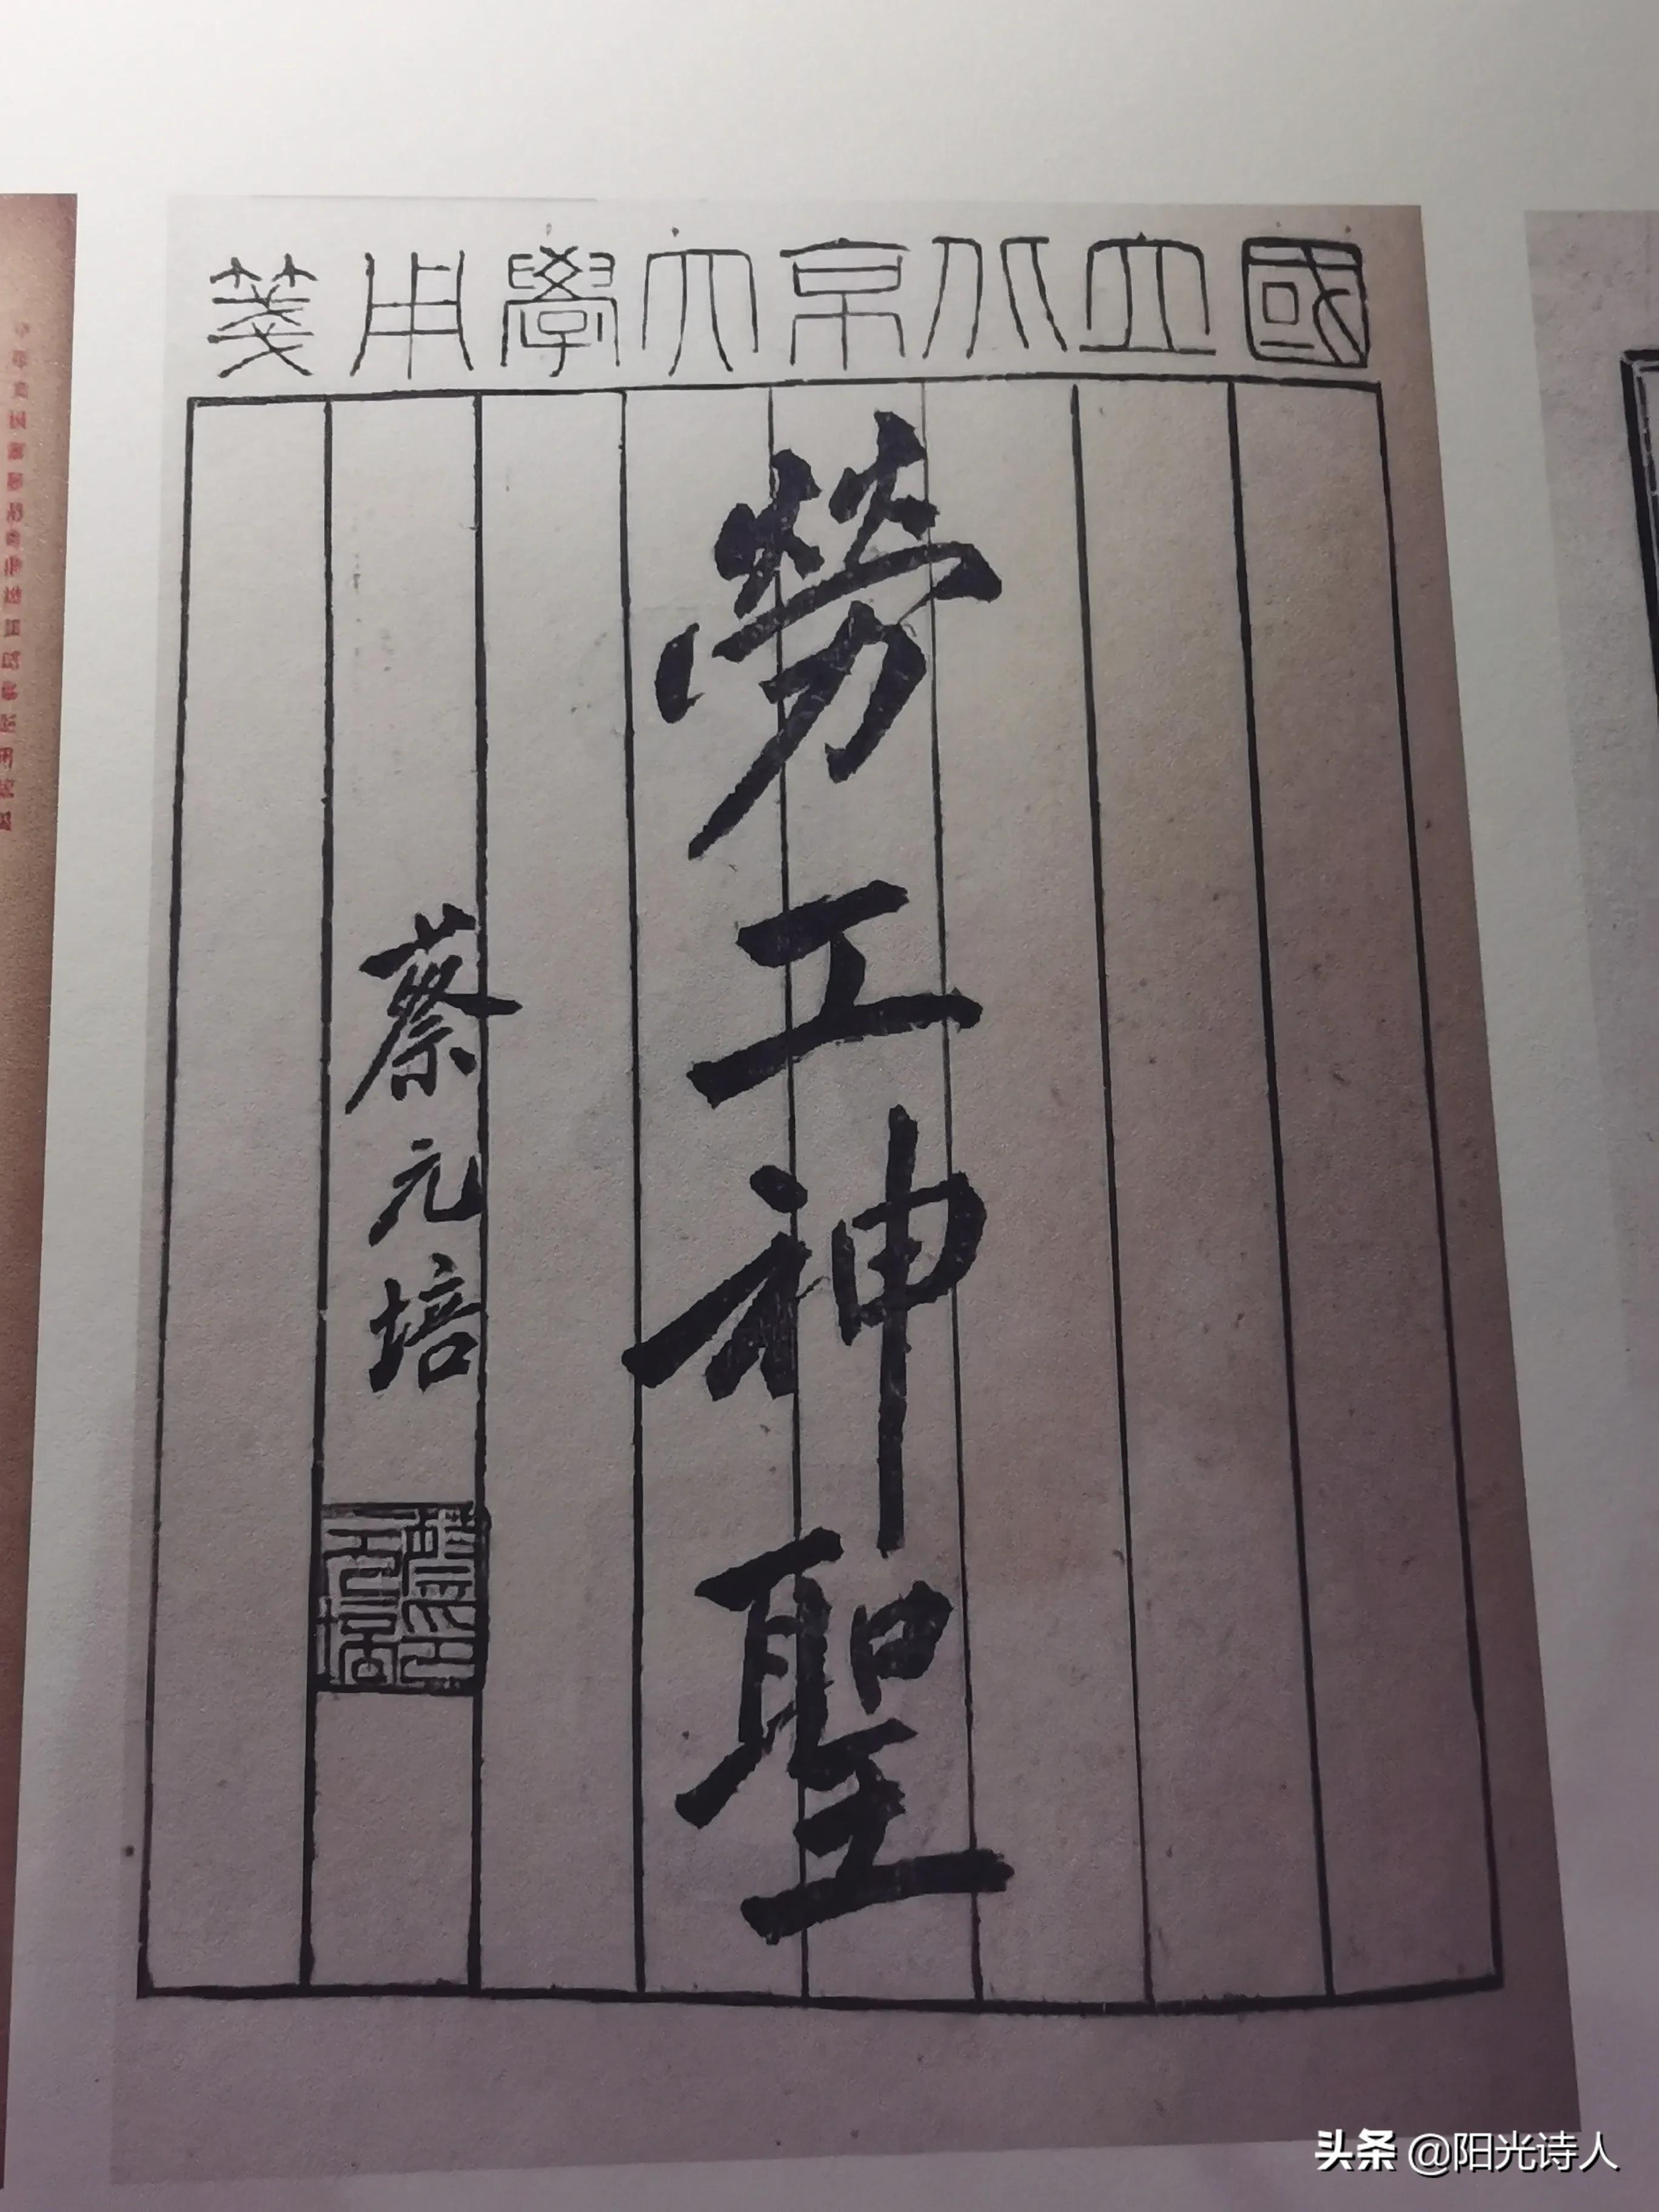 國立北京大學用箋
勞工神聖
蔡元培
头条 @阳光诗人